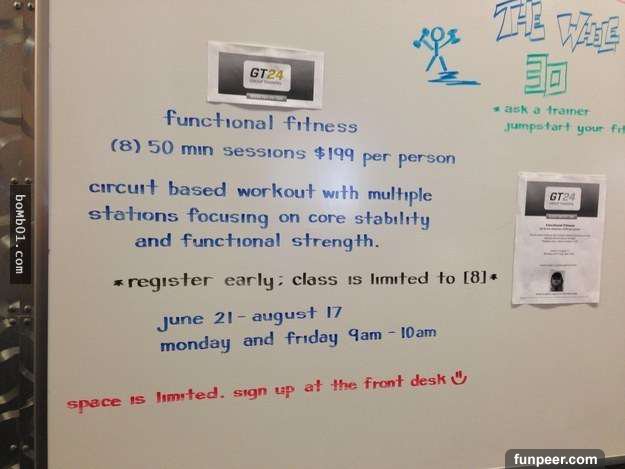 THE WHOLE
30
* ask a trainer
jumpstart your fit
GT24
GROUP TRAINING
functional fitness
(8) 50 min sessions $199 per person
circuit based workout with multiple
stations focusing on core stability
and functional strength.
*register early; class is limited to [8]*
june 21 - august 17
monday and friday 9am - 10am
space is limited. sign up at the front desk
GT24
GROUP TRAINING
Functional Fitness
boMb01.com
funpeer.com